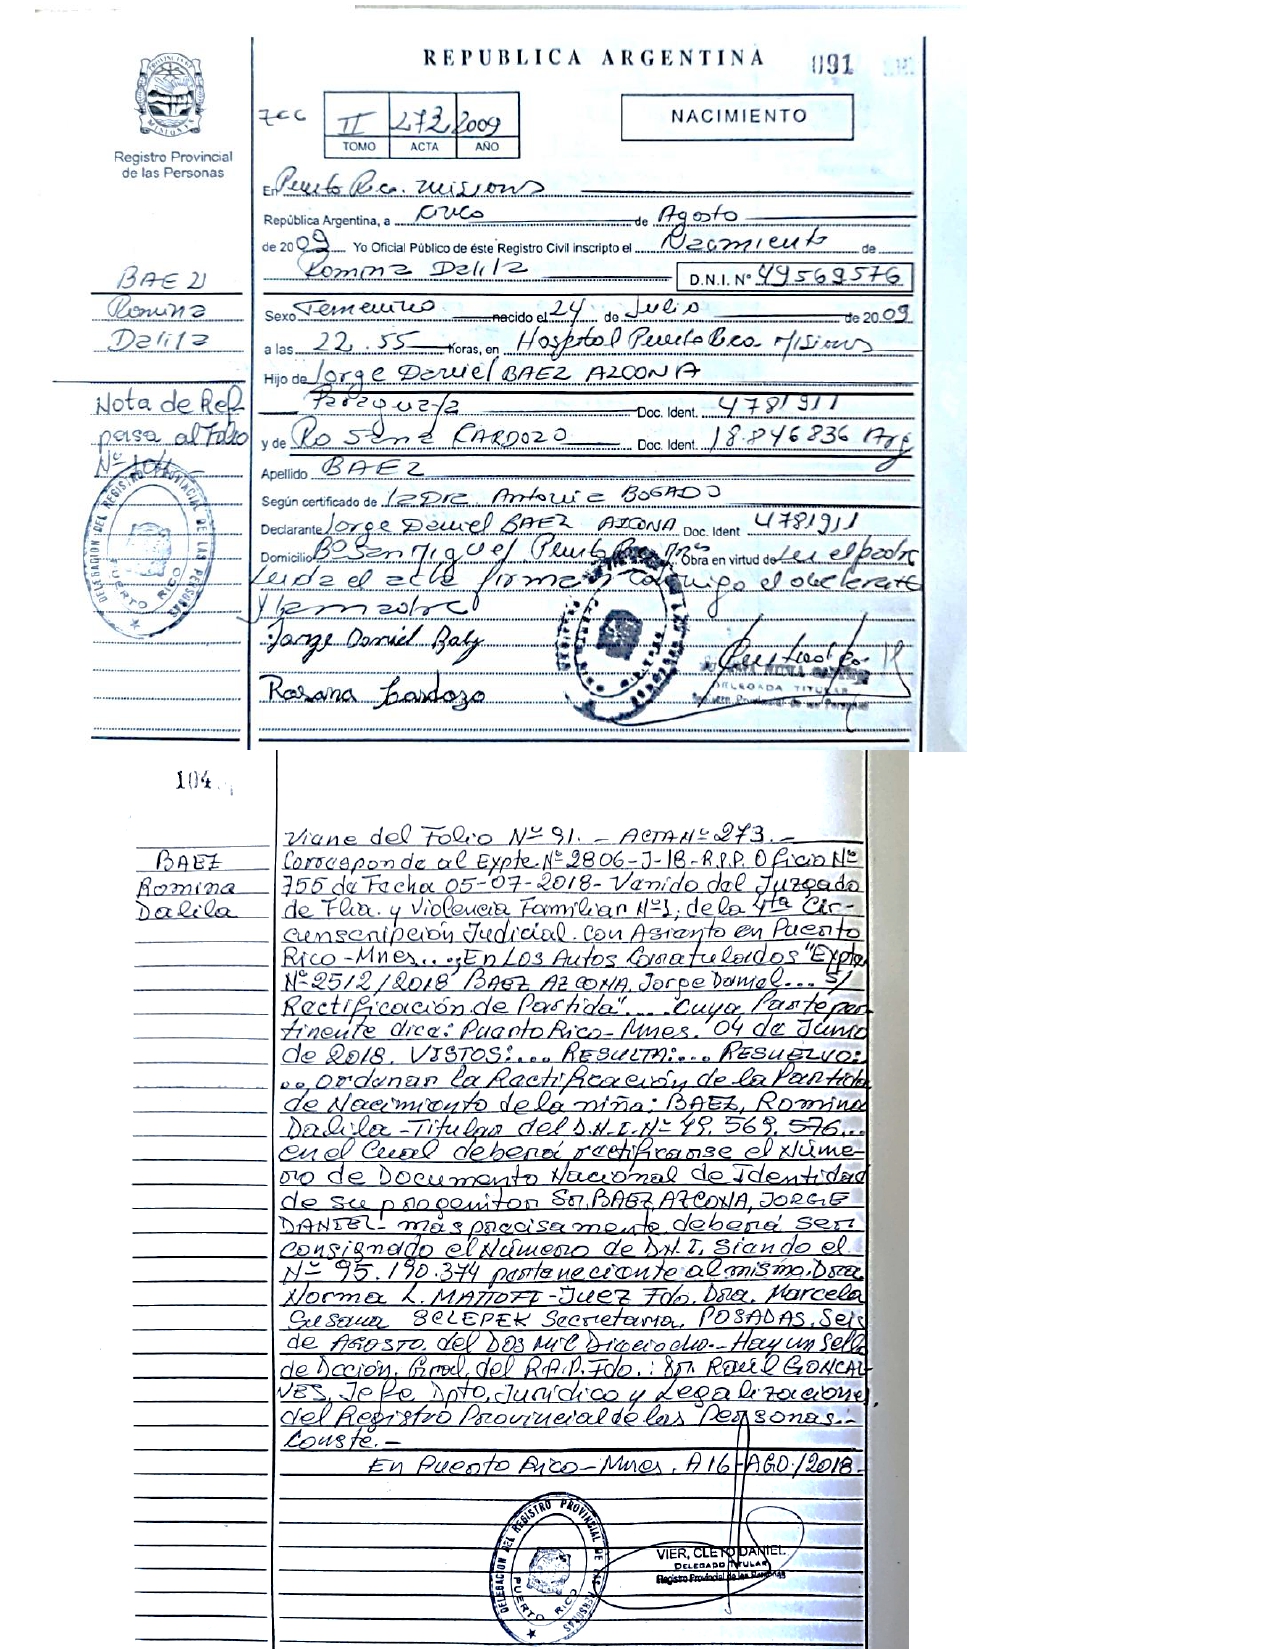 REPUBLICA ARGENTINA
091
Registro Provincial
de las Personas
II 273 2009
TOMO ACTA AÑO
NACIMIENTO
En Puerto Rico. Misiones
República Argentina, a cinco de Agosto
de 2009 Yo Oficial Público de éste Registro Civil inscripto el Nacimiento de
Romina Dalila D.N.I. Nº 49569576
Sexo Femenino nacido el 24 de Julio de 2009
a las 22.55 horas, en Hospital Puerto Rico Misiones
Hijo de Jorge Daniel BAEZ AZCONA
Paraguaya Doc. Ident. 4781911
y de Rosana CARDOZO Doc. Ident. 18.846836 Arg
Apellido BAEZ
Según certificado de la Dra. Antonia BOGADO
Declarante Jorge Daniel BAEZ AZCONA Doc. Ident 4781911
Domicilio Bº San Miguel Puerto Rico Mnes Obra en virtud de ser el padre
Leida el acta firman conmigo el declarante
y la madre
Jorge Daniel Baez
Rosana Cardozo
DELEGADA TITULAR
Registro Provincial de las Personas
BAEZ
Romina
Dalila
Nota de Ref
pasa al Folio
Nº 104
DELEGACION DEL REGISTRO PROVINCIAL DE LAS PERSONAS
PUERTO RICO
104
BAEZ
Romina
Dalila
Viene del Folio Nº 91. - ACTA Nº 273. -
Corresponde al Expte. Nº 2806-J-18-R.P.P. Oficio Nº
755 de Fecha 05-07-2018- Venido del Juzgado
de Flia. y Violencia Familiar Nº1, de la 4ta Cir-
cunscripción Judicial. con Asiento en Puerto
Rico-Mnes...; En Los Autos Caratulados "Expte
Nº 2512/2018 BAEZ AZCONA, Jorge Daniel... S/
Rectificación de Partida".... Cuya Parte per-
tinente dice: Puerto Rico- Mnes. 04 de Junio
de 2018. VISTOS:... RESULTA:... RESUELVO:
... ordenar la Rectificación de la Partida
de Nacimiento de la niña: BAEZ, Romina
Dalila - Titular del D.N.I. Nº 49.569.576...
en el Cual deberá rectificarse el Núme-
ro de Documento Nacional de Identidad
de su progenitor Sr. BAEZ AZCONA, JORGE
DANIEL- más precisamente deberá ser
consignado el Número de D.N.I. Siendo el
Nº 95.190.374 perteneciente al mismo. Dra.
Norma L. MATTOFF - Juez Fdo. Dra. Marcela
Susana SCLEPEK Secretaria. POSADAS, Seis
de AGOSTO. del DOS Mil Dieciocho.- Hay un sello
de Dcción. Gral. del R.P.P. Fdo.: Sr. Raúl GONCAL-
VES, Jefe Dpto. Jurídico y Legalizaciones
del Registro Provincial de las Personas.-
Conste. -
En Puerto Rico-Mnes. A 16-AGO/2018.
DELEGACION DEL REGISTRO PROVINCIAL DE LAS PERSONAS
PUERTO RICO
VIER, CLETO DANIEL
DELEGADO TITULAR
Registro Provincial de las Personas